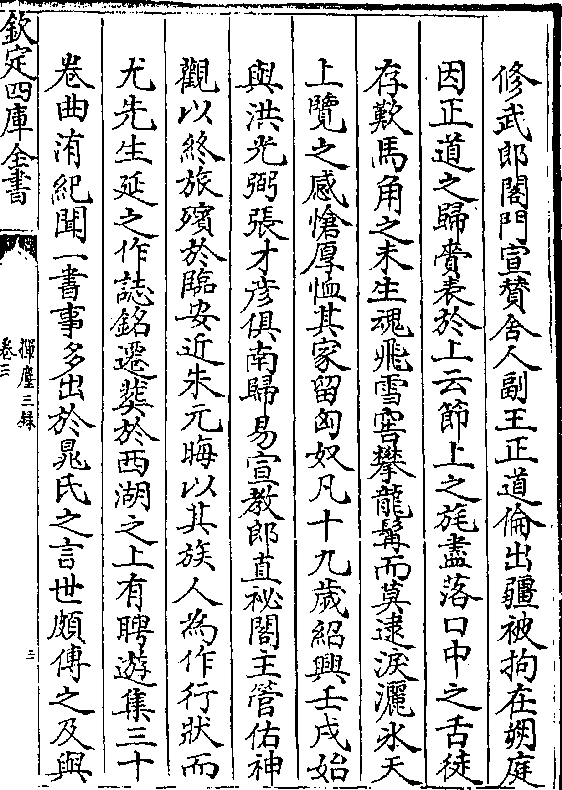 修武郎閤門宣賛舍人副王正道倫出疆被拘在朔庭
因正道之歸賫表於上云節上之旄盡落口中之舌徒
存歎馬角之未生魂飛雪窖攀龍髯而莫逮淚灑氷天
上覽之感愴厚恤其家留匈奴凡十九歲紹興壬戌始
與洪光弼張才彦俱南歸易宣教郎直祕閣主管佑神
觀以終旅殯於臨安近朱元晦以其族人為作行狀而
尤先生延之作誌銘遷葬於西湖之上有聘遊集三十
卷曲洧紀聞一書事多出於晁氏之言世頗傳之及與
欽定四庫全書
揮麈三録
卷三
三